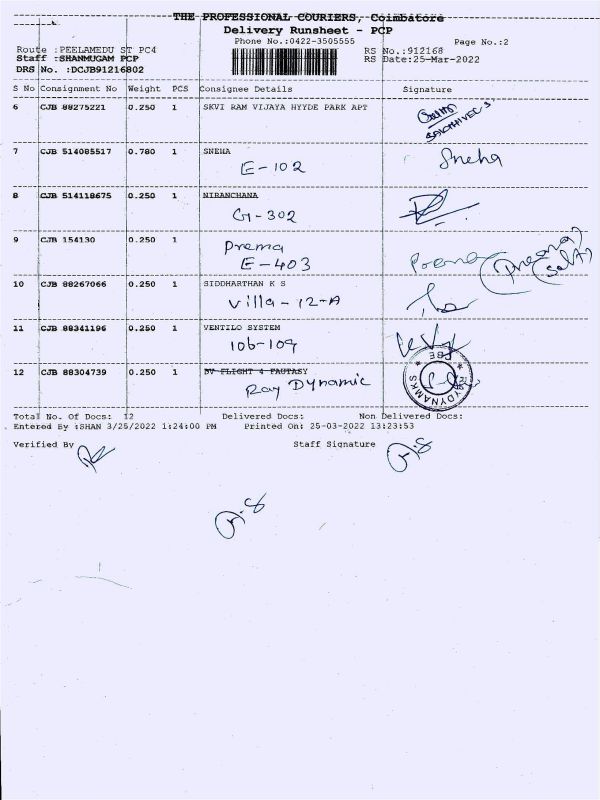 THE PROFESSIONAL COURIERS, Coimbatore
Delivery Runsheet - PCP
Phone No.:0422-3505555 Page No.:2
Route :PEELAMEDU ST PC4 RS No.:912168
Staff :SHANMUGAM PCP RS Date:25-Mar-2022
DRS No. :DCJB91216802
S No Consignment No Weight PCS Consignee Details Signature
6 CJB 88275221 0.250 1 SKVI RAM VIJAYA HYYDE PARK APT
7 CJB 514085517 0.780 1 SNEHA Sneha
E-102
8 CJB 514118675 0.250 1 NIRANCHANA
G-302
9 CJB 154130 0.250 1 Prema
E-403 Prema
10 CJB 88267066 0.250 1 SIDDHARTHAN K S
Villa-12-A
11 CJB 88341196 0.250 1 VENTILO SYSTEM
106-109
12 CJB 88304739 0.250 1 BV FLIGHT 4 FAUTASY
Ray Dynamic
Total No. Of Docs: 12 Delivered Docs: Non Delivered Docs:
Entered By :SHAN 3/25/2022 1:24:00 PM Printed On: 25-03-2022 13:23:53
Verified By Staff Signature